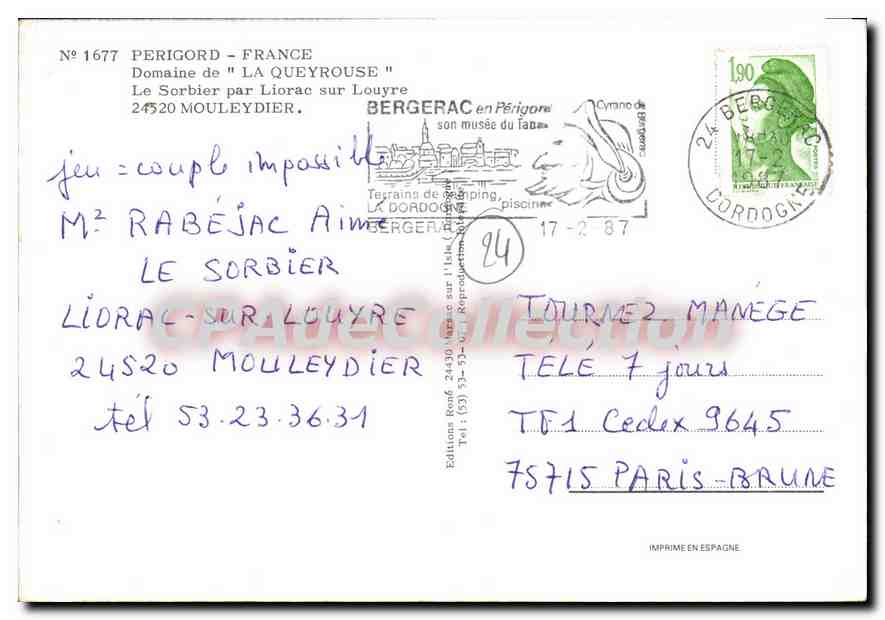 Nº 1677 PERIGORD - FRANCE
Domaine de " LA QUEYROUSE "
Le Sorbier par Liorac sur Louyre
24520 MOULEYDIER.
BERGERAC en Périgord
son musée du Tabac
Cyrano de Bergerac
Terrains de camping,
LA DORDOGNE, piscine
BERGERAC
17-2-87
1,90
24 BERGERAC
17-2
1987
DORDOGNE
jeu = couple impossible
Mr RABÉJAC Aimé
LE SORBIER
LIORAC-SUR LOUYRE
24520 MOULEYDIER
tél 53.23.36.31
24
Editions René 24430 Marsac sur l'Isle
Tel : (53) 53-53-0 Reproduction
TOURNEZ MANÉGE
TÉLÉ 7 jours
TF1 Cedex 9645
75715 PARIS-BRUNE
IMPRIME EN ESPAGNE
CPAdeCollection